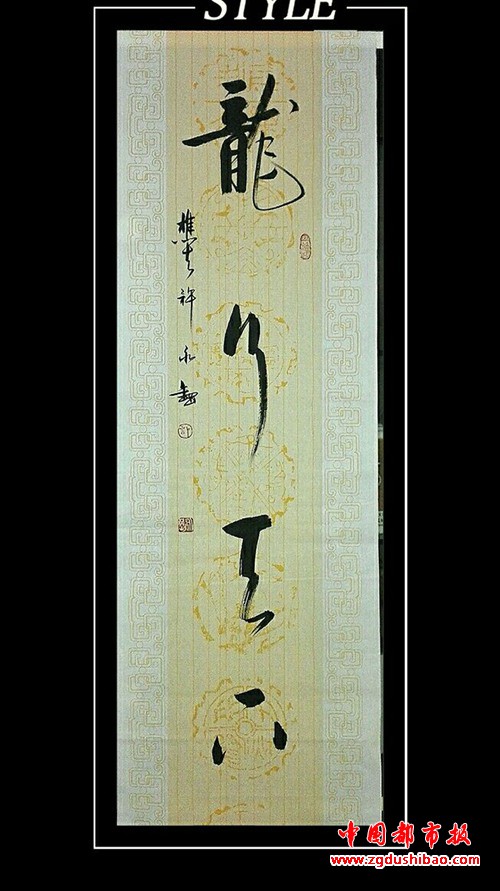 STYLE
龍行天下
許永
中国都市报
www.zgdushibao.com